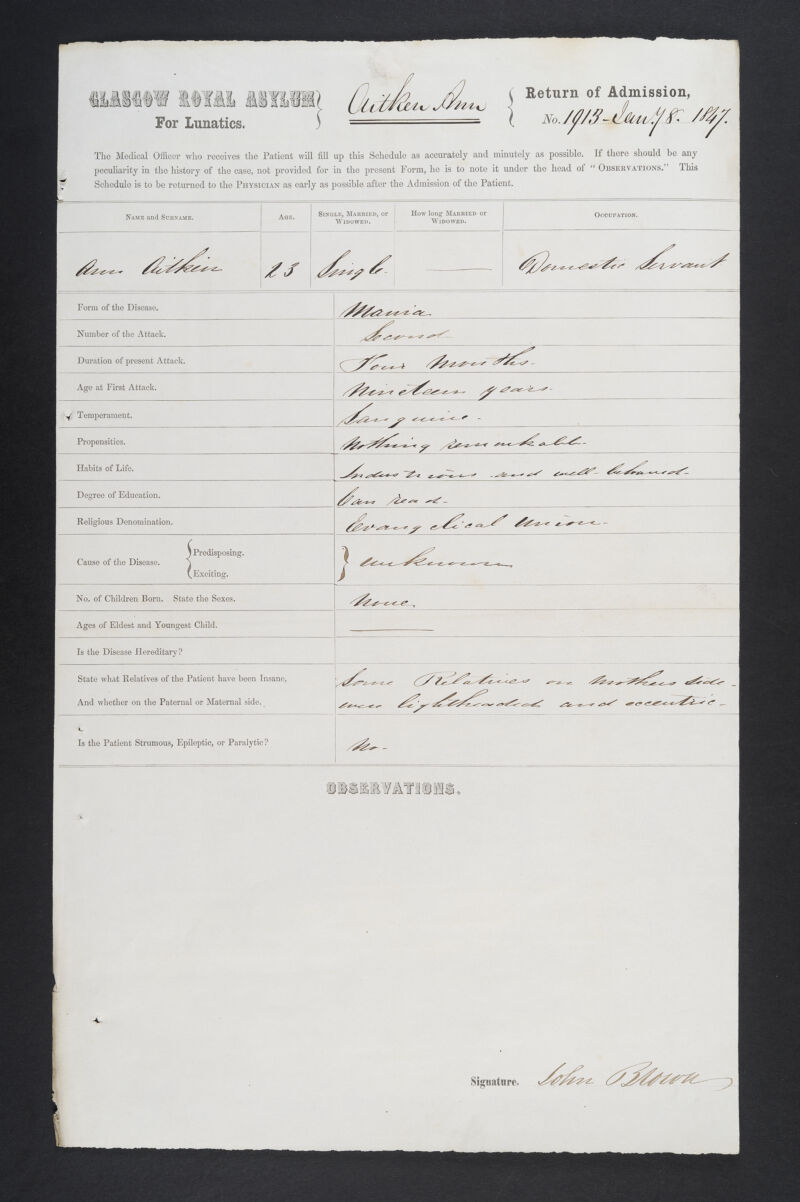 GLASGOW ROYAL ASYLUM
For Lunatics.
Aitken Ann
Return of Admission,
No. 1913 - Jany 8. 1847.
The Medical Officer who receives the Patient will fill up this Schedule as accurately and minutely as possible. If there should be any
peculiarity in the history of the case, not provided for in the present Form, he is to note it under the head of "OBSERVATIONS." This
Schedule is to be returned to the PHYSICIAN as early as possible after the Admission of the Patient.
NAME and SURNAME. AGE. SINGLE, MARRIED, or WIDOWED. How long MARRIED or WIDOWED. OCCUPATION.
Ann Aitken 23 Single. Domestic Servant
Form of the Disease. Mania.
Number of the Attack. Second
Duration of present Attack. Four Months.
Age at First Attack. Nineteen years.
Temperament. Sanguine.
Propensities. Nothing remarkable.
Habits of Life. Industrious and well-behaved-
Degree of Education. Can read-
Religious Denomination. Evangelical Union.
Cause of the Disease. { Predisposing. Exciting. } unknown
No. of Children Born. State the Sexes. None.
Ages of Eldest and Youngest Child.
Is the Disease Hereditary?
State what Relatives of the Patient have been Insane, Some Relatives on Mothers side-
And whether on the Paternal or Maternal side. were lightheaded and eccentric-
Is the Patient Strumous, Epileptic, or Paralytic? No-
OBSERVATIONS.
Signature. John Brown